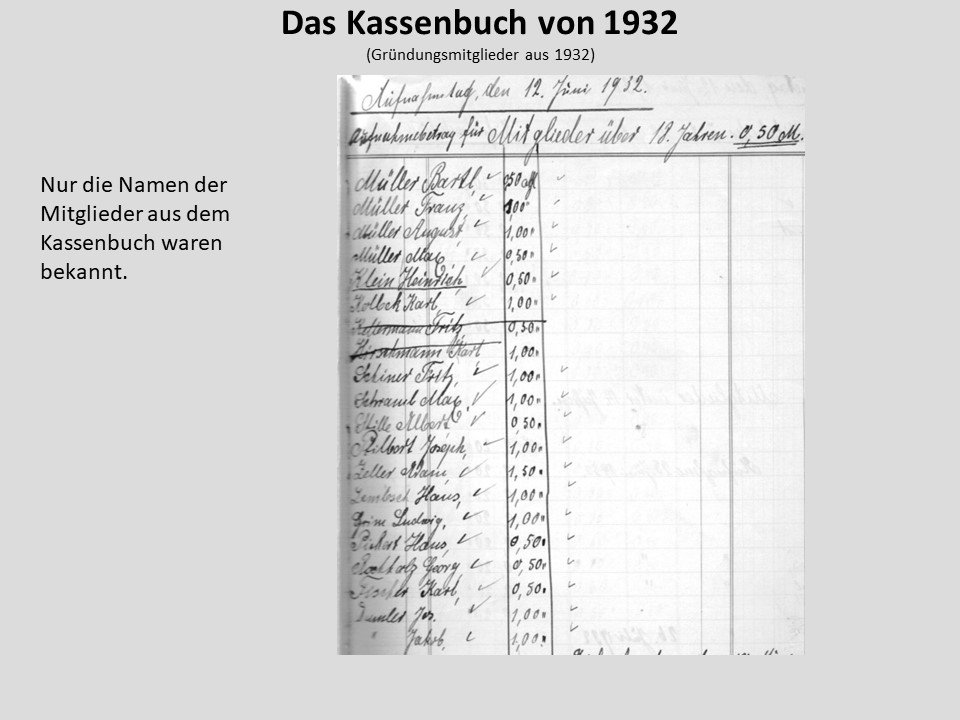 Das Kassenbuch von 1932
(Gründungsmitglieder aus 1932)
Nur die Namen der
Mitglieder aus dem
Kassenbuch waren
bekannt.
Aufnahmetag, den 12. Juni 1932.
Aufnahmebetrag für Mitglieder über 18. Jahren. 0,50 M.
Müller Bartl, 0,50 M
Müller Franz, 1,00 "
Müller August 1,00 "
Müller Max, 0,50 "
Klein Heinrich, 0,50 "
Kolbek Karl, 1,00 "
Kellermann Fritz, 0,50 "
Hirschmann Karl 1,00 "
Schiner Fritz, 1,00 "
Schraml Max, 1,00 "
Stille Albert, 0,50 "
Joseph, 1,00 "
Zeller Adam, 1,50 "
Hans, 1,00 "
Ludwig, 1,00 "
Hans, 0,50 "
Georg 0,50 "
Fischer Karl, 0,50 "
Jos. 1,00 "
" Jakob, 1,00 "